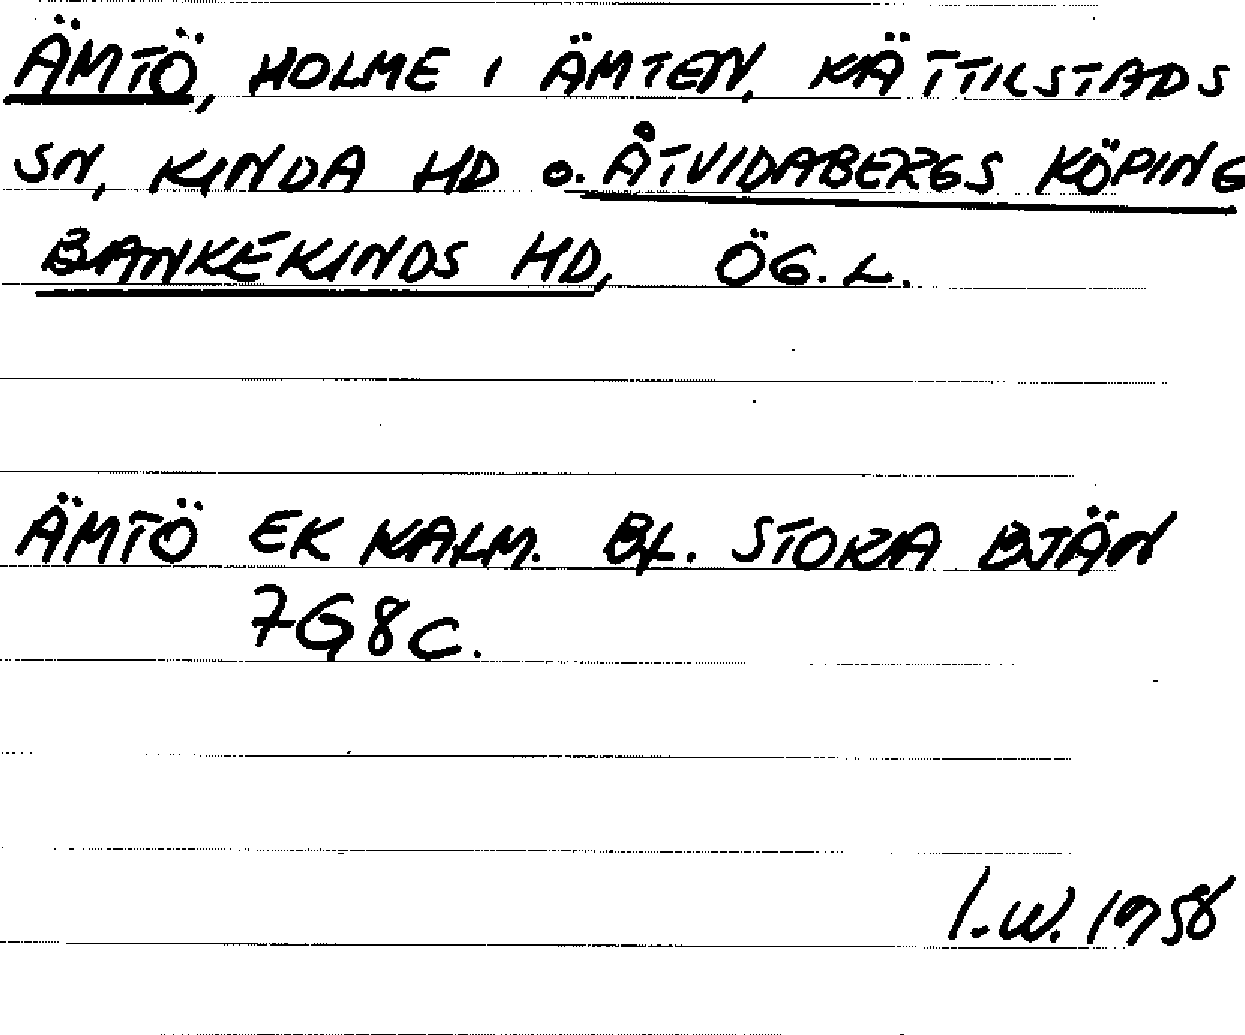 ÄMTÖ, HOLME I ÄMTEN, KÄTTILSTADS
SN, KINDA HD o. ÅTVIDABERGS KÖPING
BANKEKINDS HD, ÖG. L.
ÄMTÖ EK KALM. BL. STORA BJÄN
7G8C.
I.W. 1958